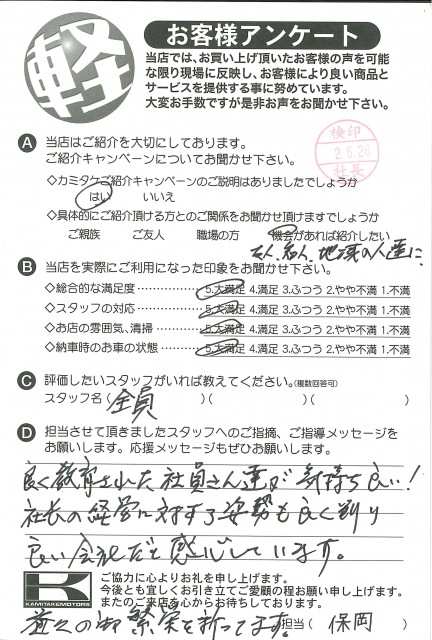 軽
お客様アンケート
当店では、お買い上げ頂いたお客様の声を可能
な限り現場に反映し、お客様により良い商品と
サービスを提供する事に努めています。
大変お手数ですが是非お声をお聞かせ下さい。
A 当店はご紹介を大切にしております。
ご紹介キャンペーンについてお聞かせ下さい。
検印
2.6.26
社長
◇カミタケご紹介キャンペーンのご説明はありましたでしょうか
はい いいえ
◇具体的にご紹介頂ける方とのご関係をお聞かせ頂けますでしょうか
ご親族 ご友人 職場の方 機会があれば紹介したい
友人、知人、地域の人達に
B 当店を実際にご利用になった印象をお聞かせ下さい。
◇総合的な満足度 5.大満足 4.満足 3.ふつう 2.やや不満 1.不満
◇スタッフの対応 5.大満足 4.満足 3.ふつう 2.やや不満 1.不満
◇お店の雰囲気、清掃 5.大満足 4.満足 3.ふつう 2.やや不満 1.不満
◇納車時のお車の状態 5.大満足 4.満足 3.ふつう 2.やや不満 1.不満
C 評価したいスタッフがいれば教えてください。(複数回答可)
スタッフ名( 全員 )( )( )
D 担当させて頂きましたスタッフへのご指摘、ご指導メッセージを
お願いします。応援メッセージもぜひお願いします。
良く教育された社員さん達が気持ち良い!
社長の経営に対する姿勢も良く判り
良い会社だと感心しています。
K
KAMITAKEMOTORS
ご協力に心よりお礼を申し上げます。
今後とも宜しくお引き立てご愛顧の程お願い申し上げます。
またのご来店を心からお待ちしております。
益々の御繁栄を祈ってます。
担当( 保岡 )